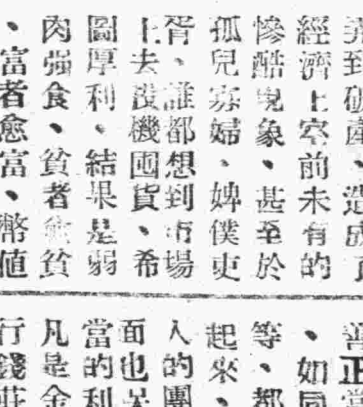 弄到破產、造成
經濟上空前未有的
慘酷現象、甚至於
孤兒寡婦、婢僕吏
胥、誰都想到市場
上去投機囤貨、希
圖厚利、結果是弱
肉强食、貧者愈貧
、富者愈富、幣値
善正當
、如同
等、都
起來、
人的團
面也呈
當的利
凡是金
行錢莊